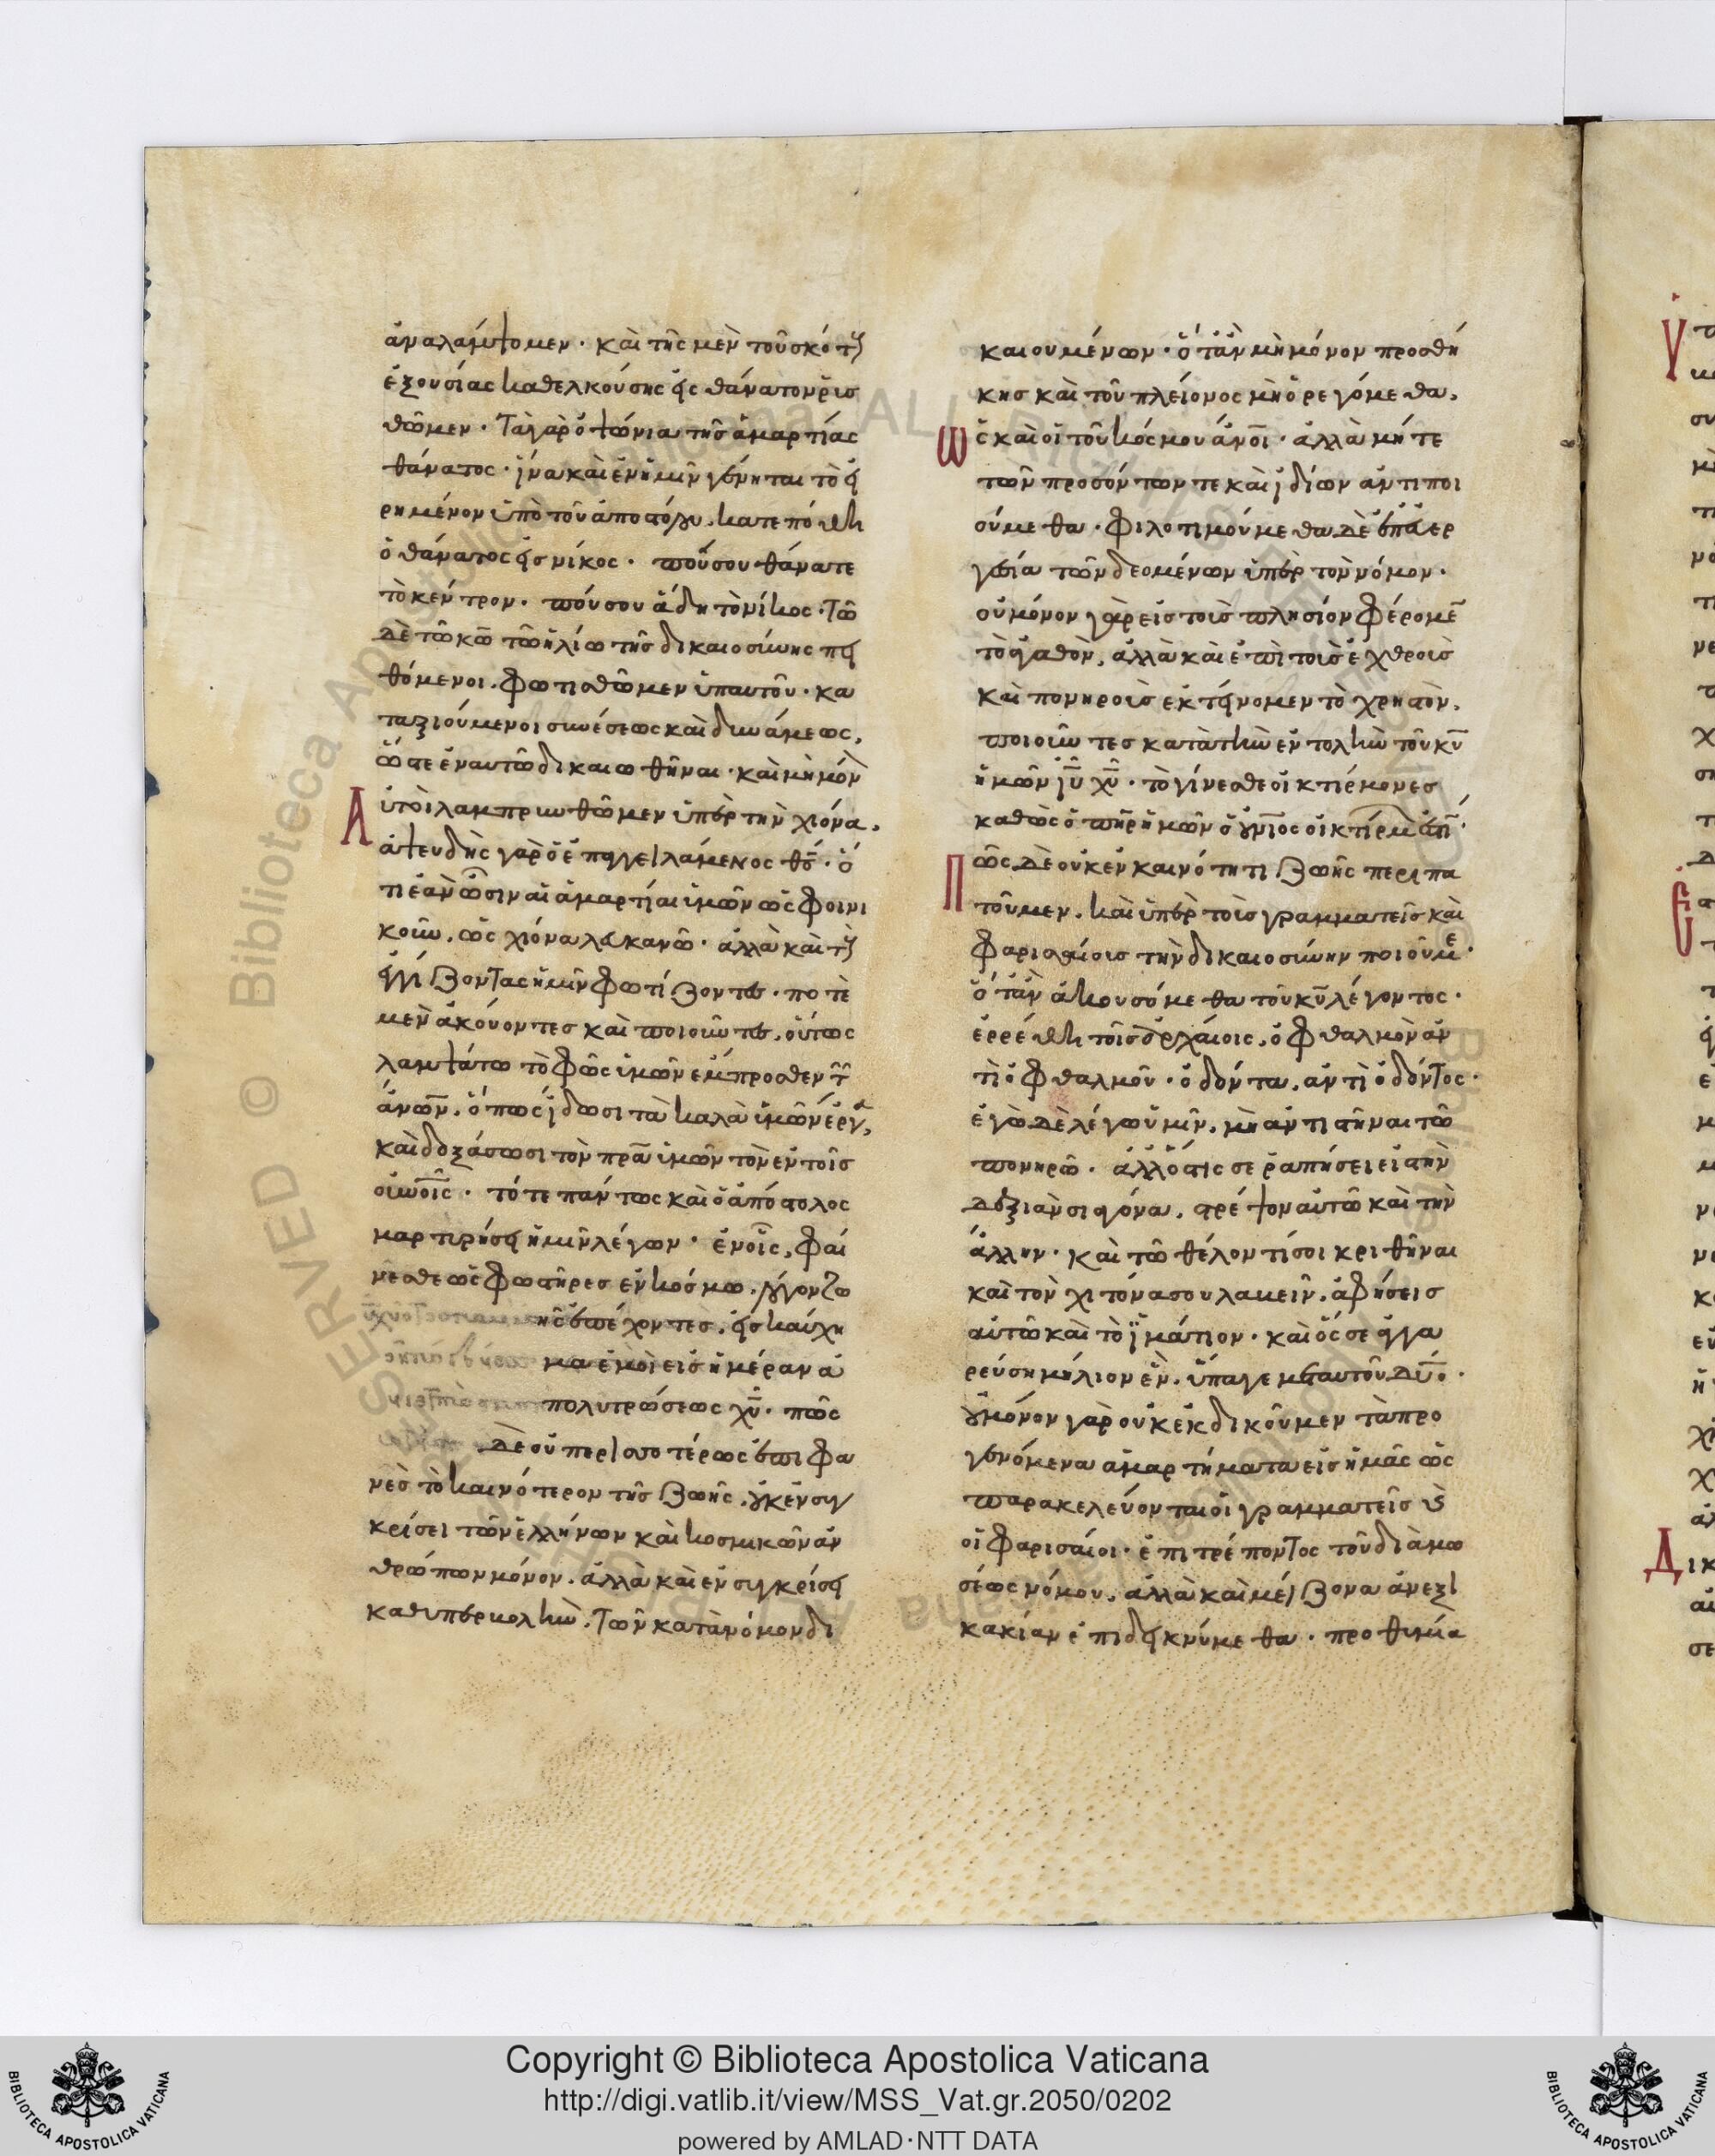 ἀναλάμψομεν · καὶ τῆς μὲν τοῦ σκότους
ἐξουσίας καθελκούσης εἰς θάνατον ῥισ
θῶμεν · Τὰ γὰρ ὀψώνια τῆς ἁμαρτίας
θάνατος · ἵνα καὶ ἐν ἡμῖν γένηται τὸ εἰ
ρημένον ὑπὸ τοῦ ἀποστόλου · κατεπόθη
ὁ θάνατος εἰς νίκος · ποῦ σου θάνατε
τὸ κέντρον · ποῦ σου ἅδη τὸ νίκος · Τῶ
δὲ τῶ κῶ τῶ ἡλίω τῆς δικαιοσύνης πει
θόμενοι · φωτισθῶμεν ὑπ αυτοῦ · κα
ταξιούμενοι συνέσεως καὶ δυνάμεως,
ὥστε ἐν αυτῶ δικαιωθῆναι · καὶ μὴ μόνον
Α υτοὶ λαμπρυνθῶμεν ὑπὲρ τὴν χιόνα ·
ἀψευδὴς γὰρ ὁ ἐπαγγειλάμενος θς · ὅ
τι ἐὰν ὦσιν αἱ ἁμαρτίαι ὑμῶν ὡς φοινι
κοῦν, ὡς χιόνα λευκανῶ · ἀλλὰ καὶ τοὺς
ἐγγίζοντας ἡμῖν φωτίζοντες · ποτὲ
μὲν ἀκούοντες καὶ ποιοῦντες · οὕτως
λαμψάτω τὸ φῶς ὑμῶν ἔμπροσθεν τῶν
ἀνων, ὅπως ἴδωσι τὰ καλὰ ὑμῶν ἔργα,
καὶ δοξάσωσι τὸν πρα ὑμῶν τὸν ἐν τοῖς
οὐνοῖς · τότε πάντως καὶ ὁ ἀπόστολος
μαρτυρήσει ἡμῖν λέγων · ἐν οἷς, φαί
νεσθε ὡς φωστῆρες ἐν κόσμω · λόγον ζω
ῆς ἐπέχοντες, εἰς καύχη
μα ἐμοὶ εἰς ἡμέραν ἀ
πολυτρώσεως χυ · πῶς
δὲ οὐ περισσοτέρως ἐπιφα
νὲς τὸ καινότερον τῆς ζωῆς, οὐκ ἐν συγ
κρίσει τῶν ἑλλήνων καὶ κοσμικῶν ἀν
θρώπων μόνον · ἀλλὰ καὶ ἐν συγκρίσει
καθ ὑπερβολὴν · Τῶν κατὰ νόμον δι
καιουμένων · ὅταν μὴ μόνον προσθή
κης καὶ τοῦ πλείονος μὴ ὀρεγόμεθα,
Ω ς καὶ οἱ τοῦ κόσμου ἄνοι · ἀλλὰ μήτε
τῶν προσόντων τε καὶ ἰδίων ἀντιποι
ούμεθα · φιλοτιμούμεθα δὲ ἐπ ἀερ
γεσία τῶν δεομένων ὑπὲρ τὸν νόμον ·
οὐ μόνον γὰρ εἰς τοῖς πλησίον φέρομεν
τὸ ἀγαθὸν, ἀλλὰ καὶ ἐπὶ τοῖς ἐχθροῖς
καὶ πονηροῖς ἐκτείνομεν τὸ χρηστὸν,
ποιοῦντες κατὰ τὴν ἐντολὴν τοῦ κυ
ἡμῶν ιυ χυ · τὸ γίνεσθε οἰκτίρμονες
καθὼς ὁ πηρ ἡμῶν ὁ οὐνιος οἰκτίρμων ἐστίν ·
Π ῶς δὲ οὐκ ἐν καινότητι ζωῆς περιπα
τοῦμεν, καὶ ὑπὲρ τοῖς γραμματεῖς καὶ
φαρισαίοις τὴν δικαιοσύνην ποιοῦμε ·
ὅταν ἀκουσόμεθα τοῦ κυ λέγοντος ·
ἐρρέθη τοῖς ἀρχαίοις, ὀφθαλμὸν ἀν
τὶ ὀφθαλμοῦ · ὀδόντα, ἀντὶ ὀδόντος ·
ἐγὼ δὲ λέγω ὑμῖν, μὴ ἀντιστῆναι τῶ
πονηρῶ · ἀλλ ὅστις σε ῥαπήσει εἰς τὴν
δεξιὰν σιαγόνα, στρέψον αὐτῶ καὶ τὴν
ἄλλην · καὶ τῶ θέλοντί σοι κριθῆναι
καὶ τὸν χιτόνα σου λαμεῖν, ἀφήσεις
αὐτῶ καὶ τὸ ἱμάτιον · καὶ ὅς σε ἀγγα
ρεύση μήλιον ἓν, ὕπαγε μετ αυτοῦ δύο ·
οὐ μόνον γὰρ οὐκ ἐκδικοῦμεν τὰ προ
γενόμενα ἁμαρτήματα εἰς ἡμᾶς ὡς
παρακελεύονται οἱ γραμματεῖς καὶ
οἱ φαρισαίοι · ἐπιτρέποντος τοῦ διὰ μω
σέως νόμου, ἀλλὰ καὶ μείζονα ἀνεξι
κακίαν ἐπιδεικνύμεθα · προθυμία